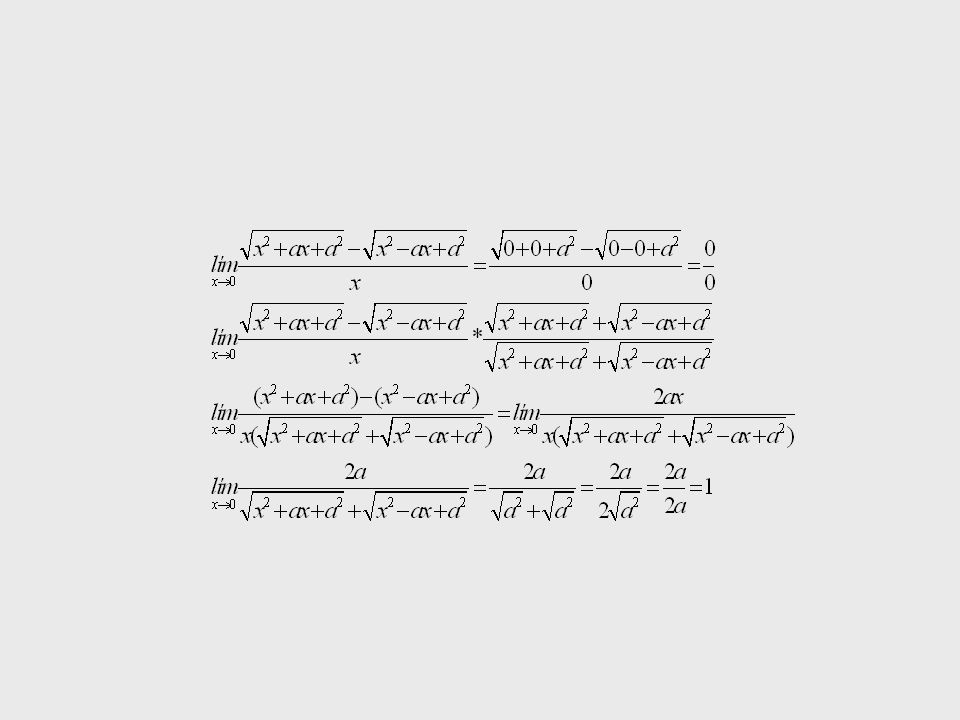 lím x→0 (√(x²+ax+a²) −√(x²−ax+a²))/x = (√(0+0+a²) −√(0−0+a²))/0 = 0/0
lím x→0 (√(x²+ax+a²) −√(x²−ax+a²))/x * (√(x²+ax+a²) +√(x²−ax+a²))/(√(x²+ax+a²) +√(x²−ax+a²))
lím x→0 ((x²+ax+a²)−(x²−ax+a²))/(x(√(x²+ax+a²) +√(x²−ax+a²))) = lím x→0 2ax/(x(√(x²+ax+a²) +√(x²−ax+a²)))
lím x→0 2a/(√(x²+ax+a²) +√(x²−ax+a²)) = 2a/(√(a²) +√(a²)) = 2a/(2√(a²)) = 2a/2a = 1